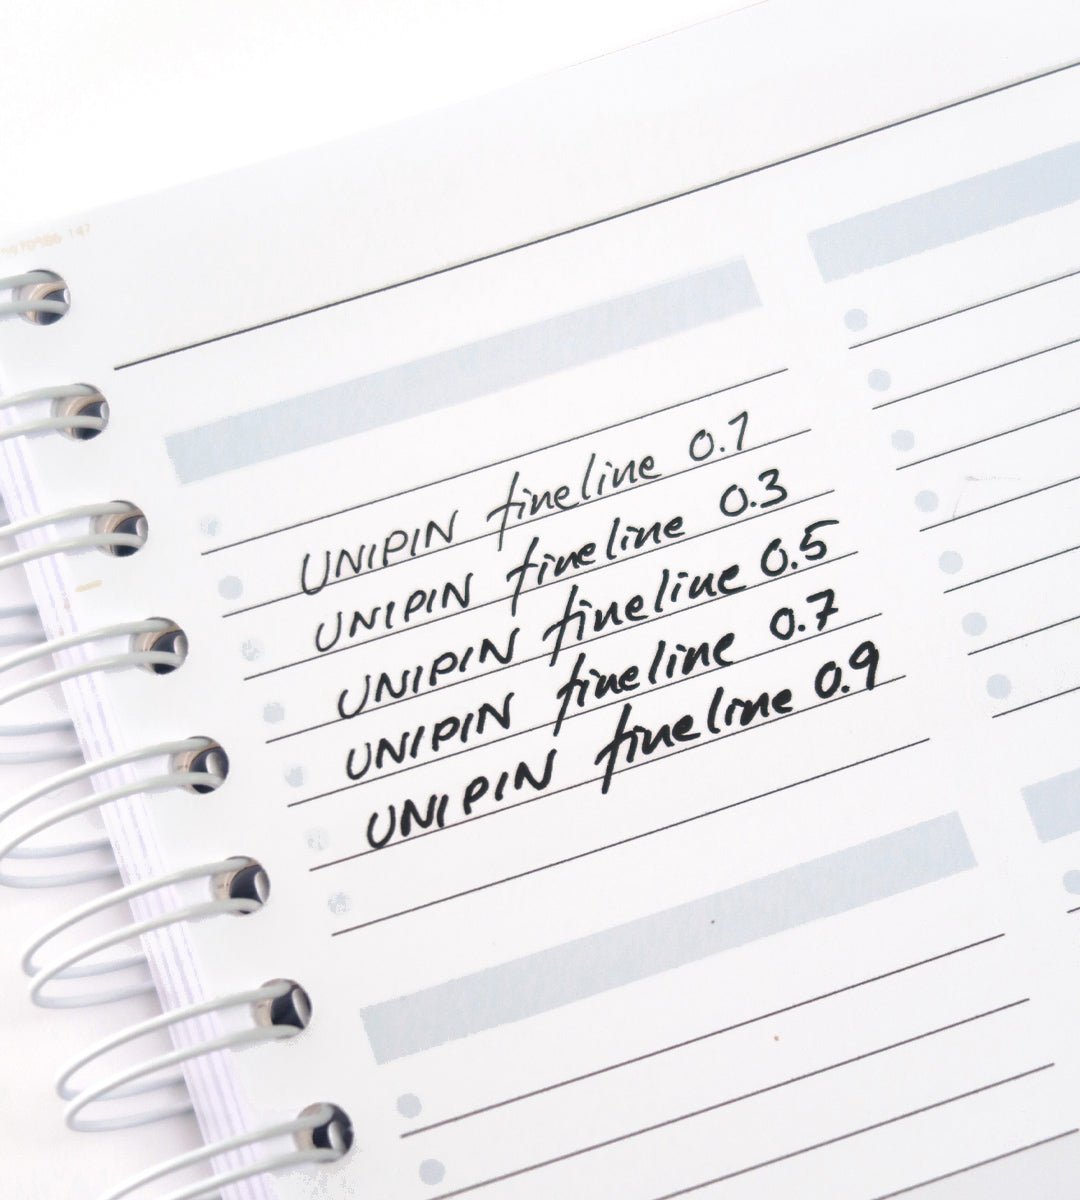 UNIPIN fineline 0.1
UNIPIN fineline 0.3
UNIPIN fineline 0.5
UNIPIN fineline 0.7
UNIPIN fineline 0.9